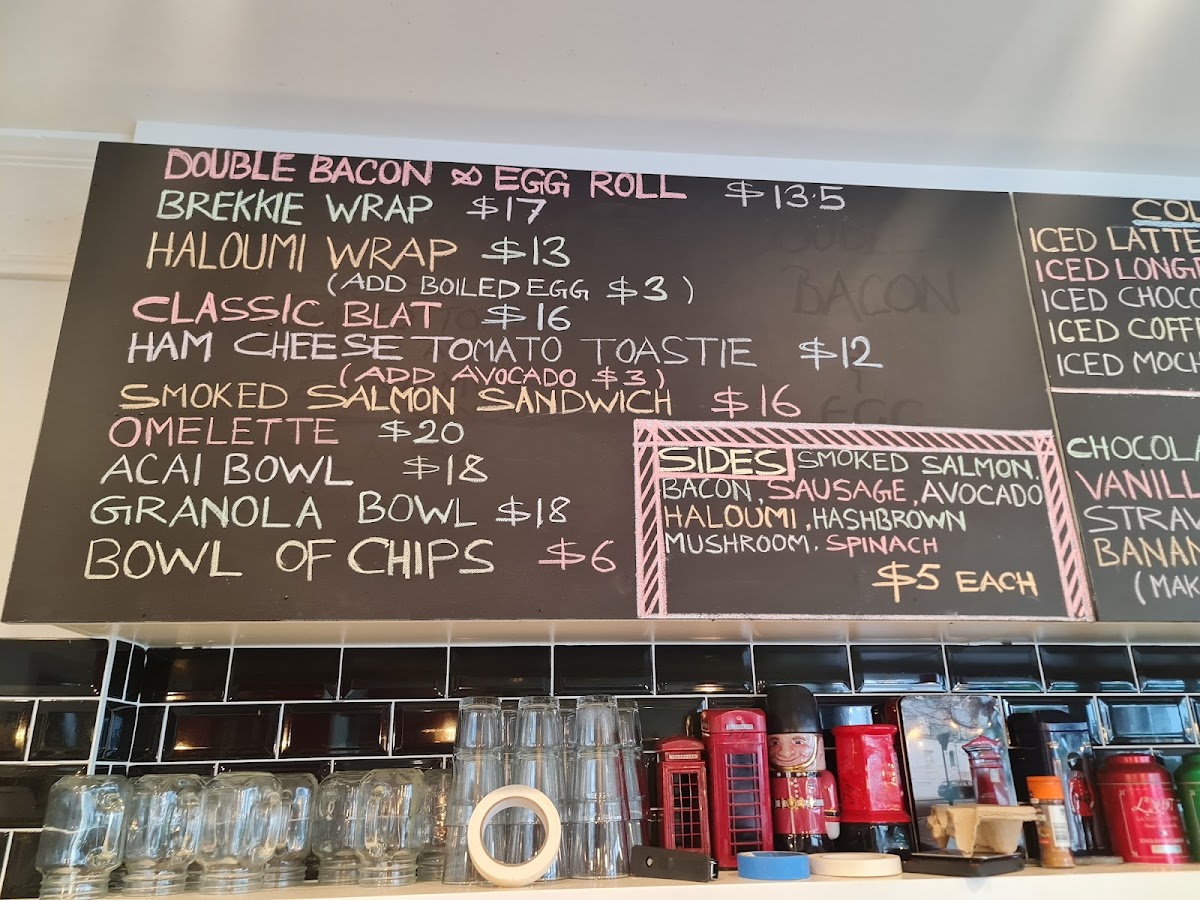 DOUBLE BACON & EGG ROLL $13.5
BREKKIE WRAP $17
HALOUMI WRAP $13
(ADD BOILED EGG $3)
CLASSIC BLAT $16
HAM CHEESE TOMATO TOASTIE $12
(ADD AVOCADO $3)
SMOKED SALMON SANDWICH $16
OMELETTE $20
ACAI BOWL $18
GRANOLA BOWL $18
BOWL OF CHIPS $6
SIDES SMOKED SALMON,
BACON, SAUSAGE, AVOCADO
HALOUMI, HASHBROWN
MUSHROOM, SPINACH
$5 EACH
ICED LATTE
ICED LONG
ICED CHOCO
ICED COFF
ICED MOCH
CHOCOLA
VANILL
STRAW
BANAN
(MAK
BACON
EGG
TELEPHONE